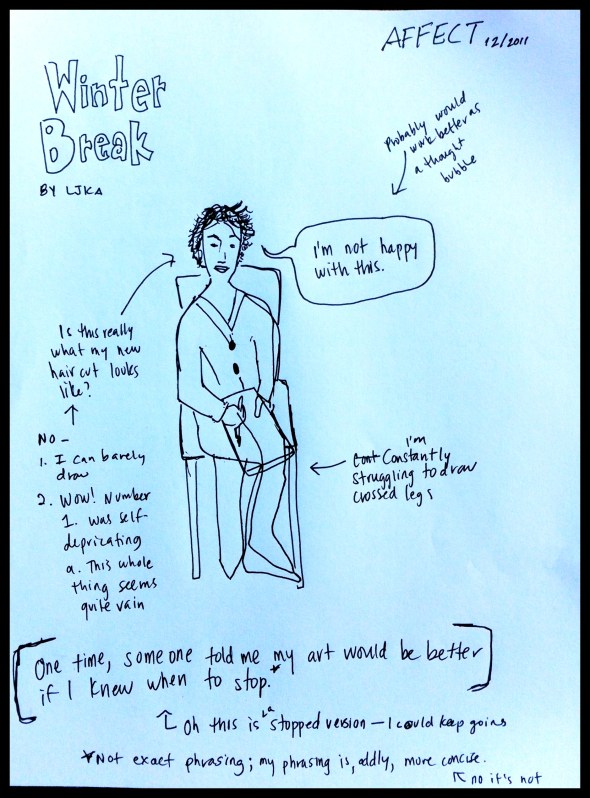 AFFECT 12/2011
Winter
Break
BY LJKA
Probably would
work better as
a thought
bubble
I'm not happy
with this.
Is this really
what my new
hair cut looks
like?
No –
1. I can barely
draw
2. Wow! Number
1. was self-
depricating
a. This whole
thing seems
quite vain
I'm
Cont Constantly
struggling to draw
crossed legs
[One time, someone told me my art would be better
if I knew when to stop.*]
Oh this is a stopped version – I could keep going
*Not exact phrasing; my phrasing is, oddly, more concise.
no it's not